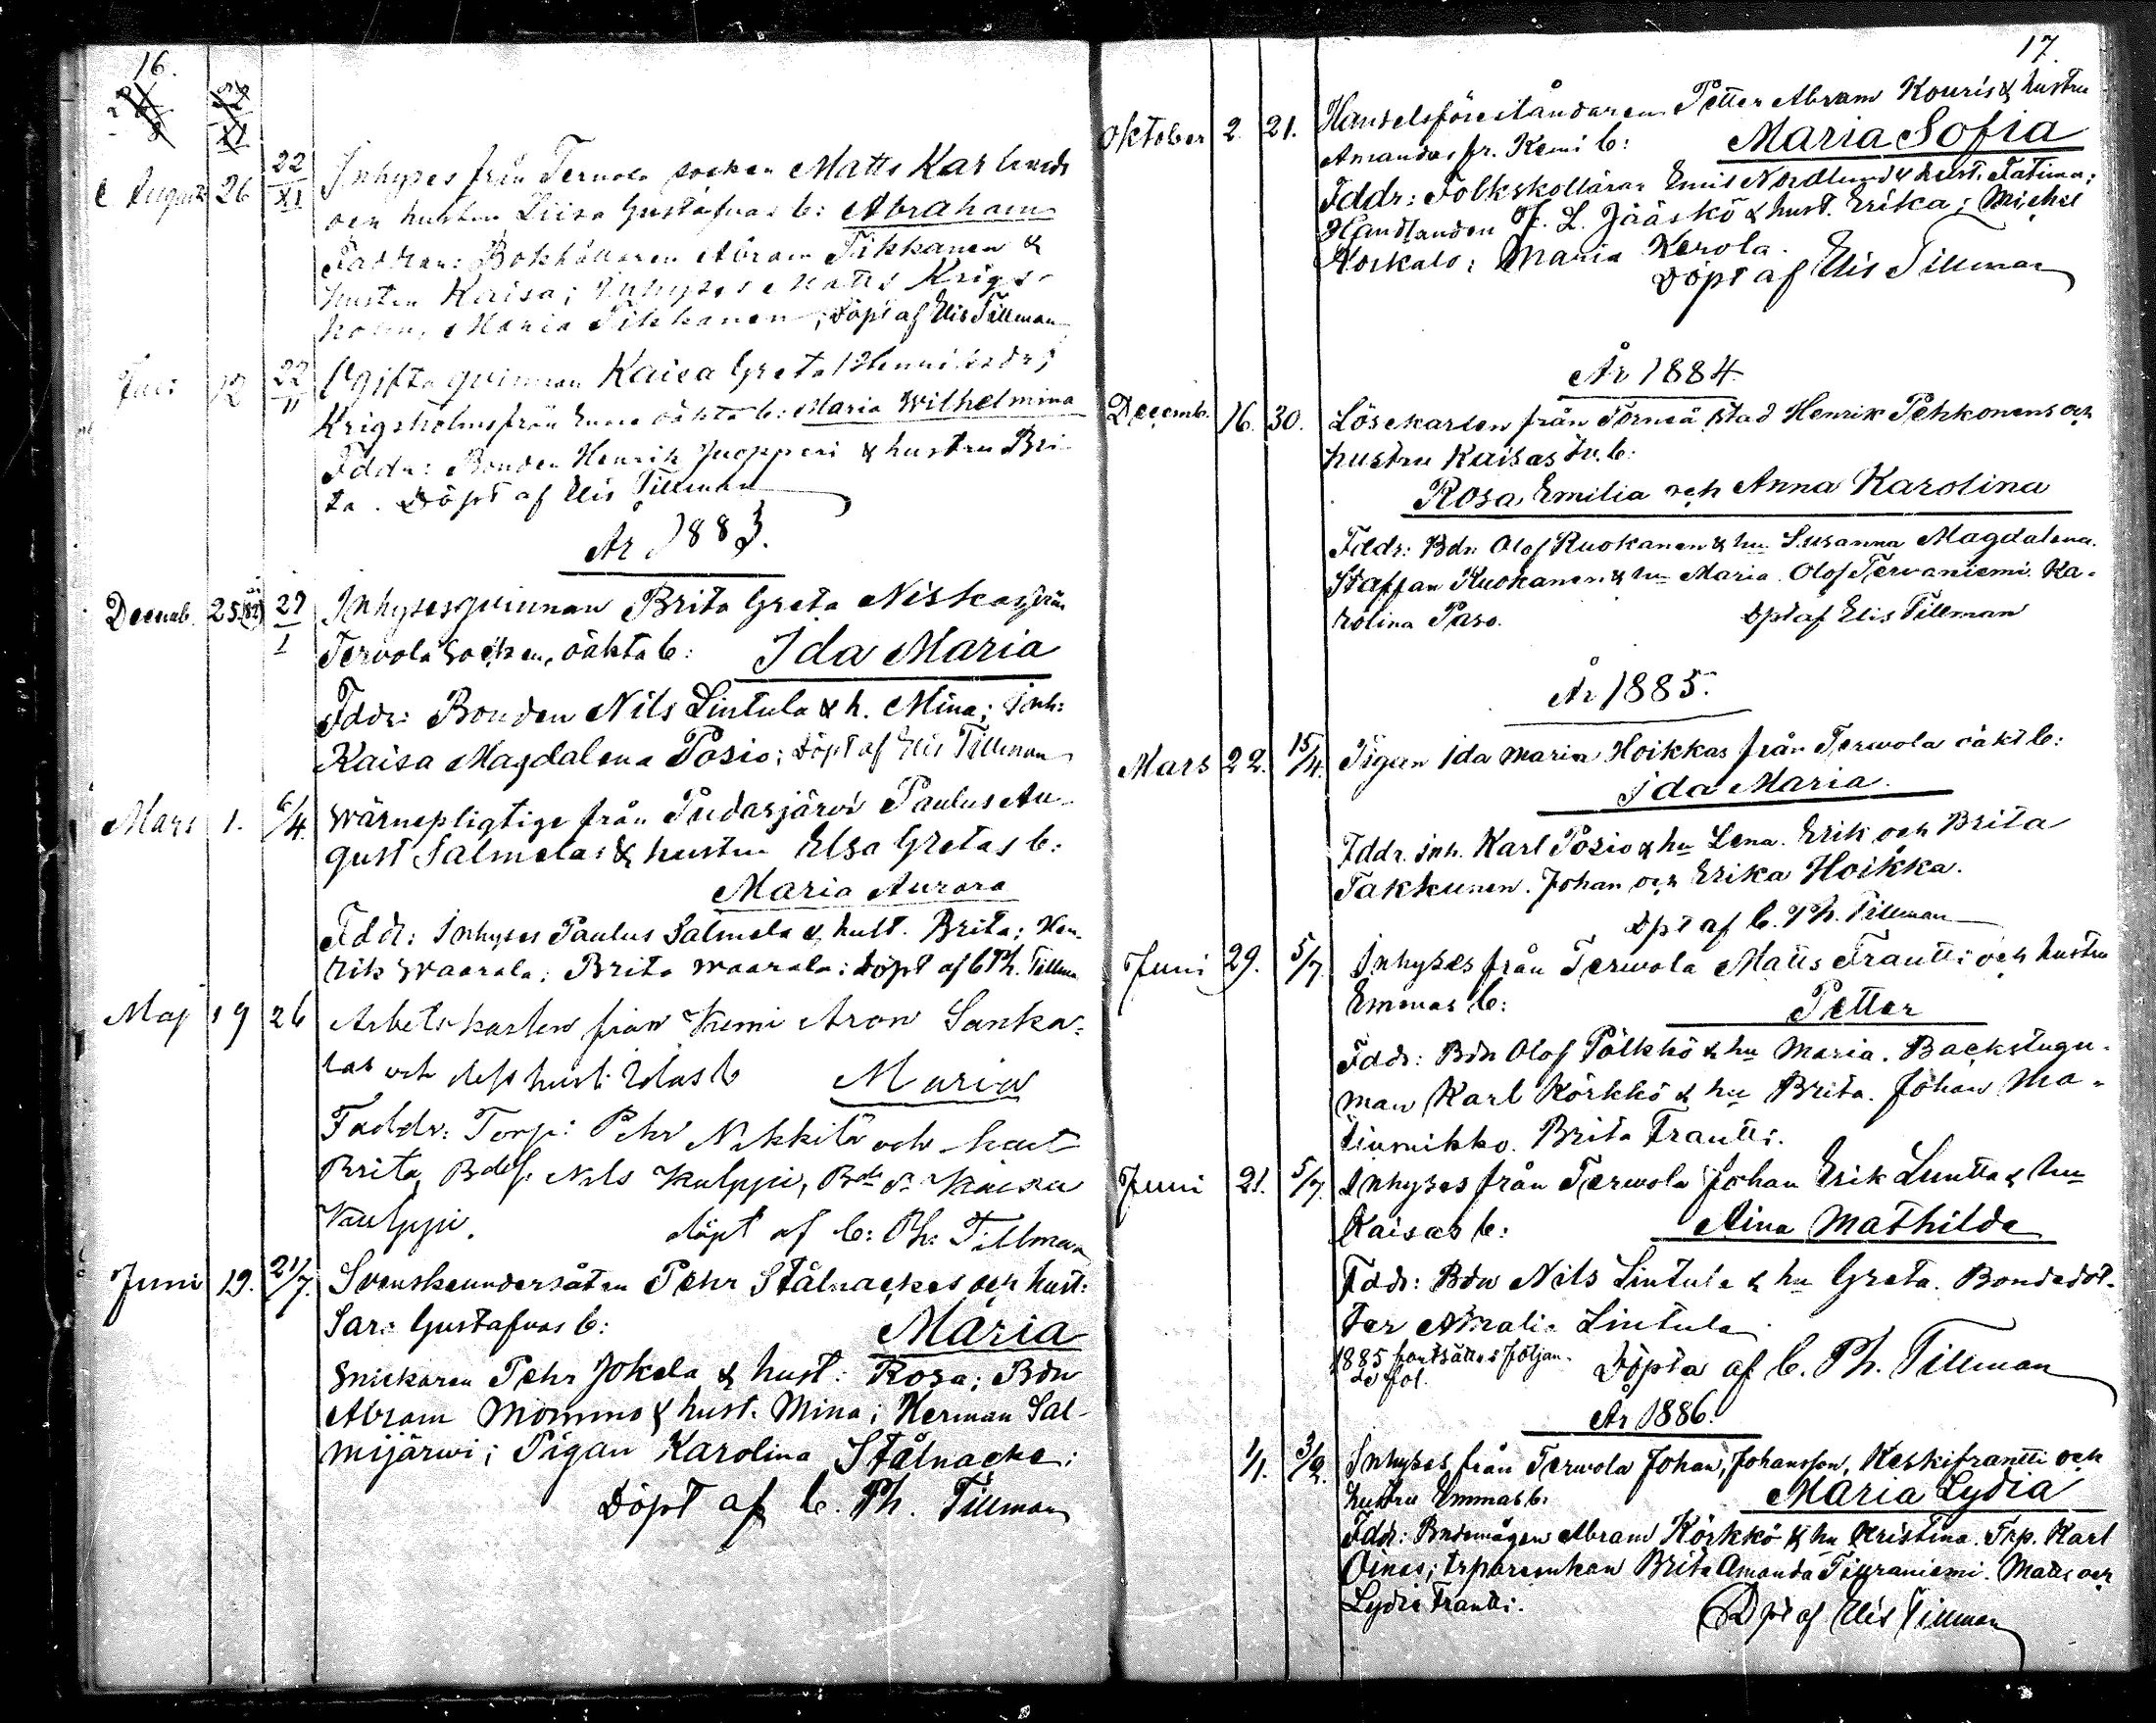 16.
August 26 22/XI Inhyses från Tervola socken Matts Karlunds
och hustru Liisa Gustafvas b: Abraham
Faddrar: Bokhållaren Abram Tikkanen &
hustru Kaisa; Inhyses Matts Krigs-
holm, Maria Tikkanen; Döpt af Elis Tillman
Juli 12 22/11 Ogifta qvinnan Kaisa Greta Henriksdr
Krigsholms från Enare oäkta b: Maria Wilhelmina
Fddr: Bonden Henrik Juopperi & hustru Bri-
ta. Döpt af Elis Tillman
År 1883.
Decemb. 25.(82) 27/I Inhysesqvinnan Brita Greta Niskas från
Tervola socken, oäkta b: Ida Maria
Fddr: Bonden Nils Lintula & h. Mina; Inh:
Kaisa Magdalena Posio; Döpt af Elis Tillman
Mars 1. 6/4. Wärnepligtige från Pudasjärvi Paulus Au-
gust Salmelas & hustru Elsa Gretas b:
Maria Aurora
Fddr: Inhyses Paulus Salmela & hust. Brita; Hen-
rik Waarala; Brita Waarala; Döpt af C Ph. Tillman
Maj 19 26 Arbetskarlen från Kemi Aron Sanka-
las och dess hust: Idas b Maria
Faddr: Torp: Pehr Nikkilä och hust
Brita, Bdes: Nils Kulppi, Bdr Kaisa
Kulppi. döpt af C: Ph: Tillman
Juni 19. 21/7. Svenskeundersåten Pehr Stålnackes och hust:
Sara Gustafvas b: Maria
Snickaren Pehr Jokela & hust: Rosa; Bdn
Abram Mommo & hust. Mina; Herman Sal-
mijärwi; Pigan Karolina Stålnacke;
Döpt af C. Ph. Tillman
17.
Oktober 2. 21. Handelsföreståndaren Petter Abram Kouris & hustru
Amandas fr. Kemi b: Maria Sofia
Fddr: Folkskollärar Emil Nordlund & hust. Fatima;
Handlanden F. L. Jääskö & hust. Erika; Michel
Korkalo; Maria Kerola.
Döpt af Elis Tillman
År 1884
Decemb. 16. 30. Lösekarlen från Torneå stad Henrik Pehkonens och
hustru Kaisas tv. b:
Rosa Emilia och Anna Karolina
Fddr: Bdn Olof Ruokanen & hu Susanna Magdalena.
Staffan Ruokanen & hu Maria. Olof Tervaniemi. Ka-
rolina Paso. Dpt af Elis Tillman
År 1885.
Mars 22. 15/4. Pigan Ida Maria Hoikkas från Terwola oäkt b:
Ida Maria.
Fddr. Inh. Karl Posio & hu Lena. Erik och Brita
Takkunen. Johan och Erika Hoikka.
Dpt af C. Ph. Tillman
Juni 29. 5/7. Inhyses från Terwola Matts Frantti och hustru
Emmas b: Petter
Fddr: Bdn Olof Pölkkö & hu Maria. Backstugu-
man Karl Körkkö & hu Brita. Johan Ma-
tinmikko. Brita Frantti.
Juni 21. 5/7. Inhyses från Terwola Johan Erik Luntta & hu
Kaisas b: Aina Mathilda
Fddr: Bdn Nils Lintula & hu Greta. Bondedot-
ter Amalia Lintula
1885 fortsättes följan-
de fol. Döpta af C. Ph. Tillman
År 1886.
1/1. 3/2. Inhyses från Terwola Johan, Johansson, Keskifrantti och
hustru Emmas b: Maria Lydia
Fddr: Bndemågen Abram Körkkö & hu Kristina. Trp. Karl
Oinas; trpareenkan Brita Amanda Tiuraniemi. Matts och
Lydia Frantti. Dpt af Elis Tillman